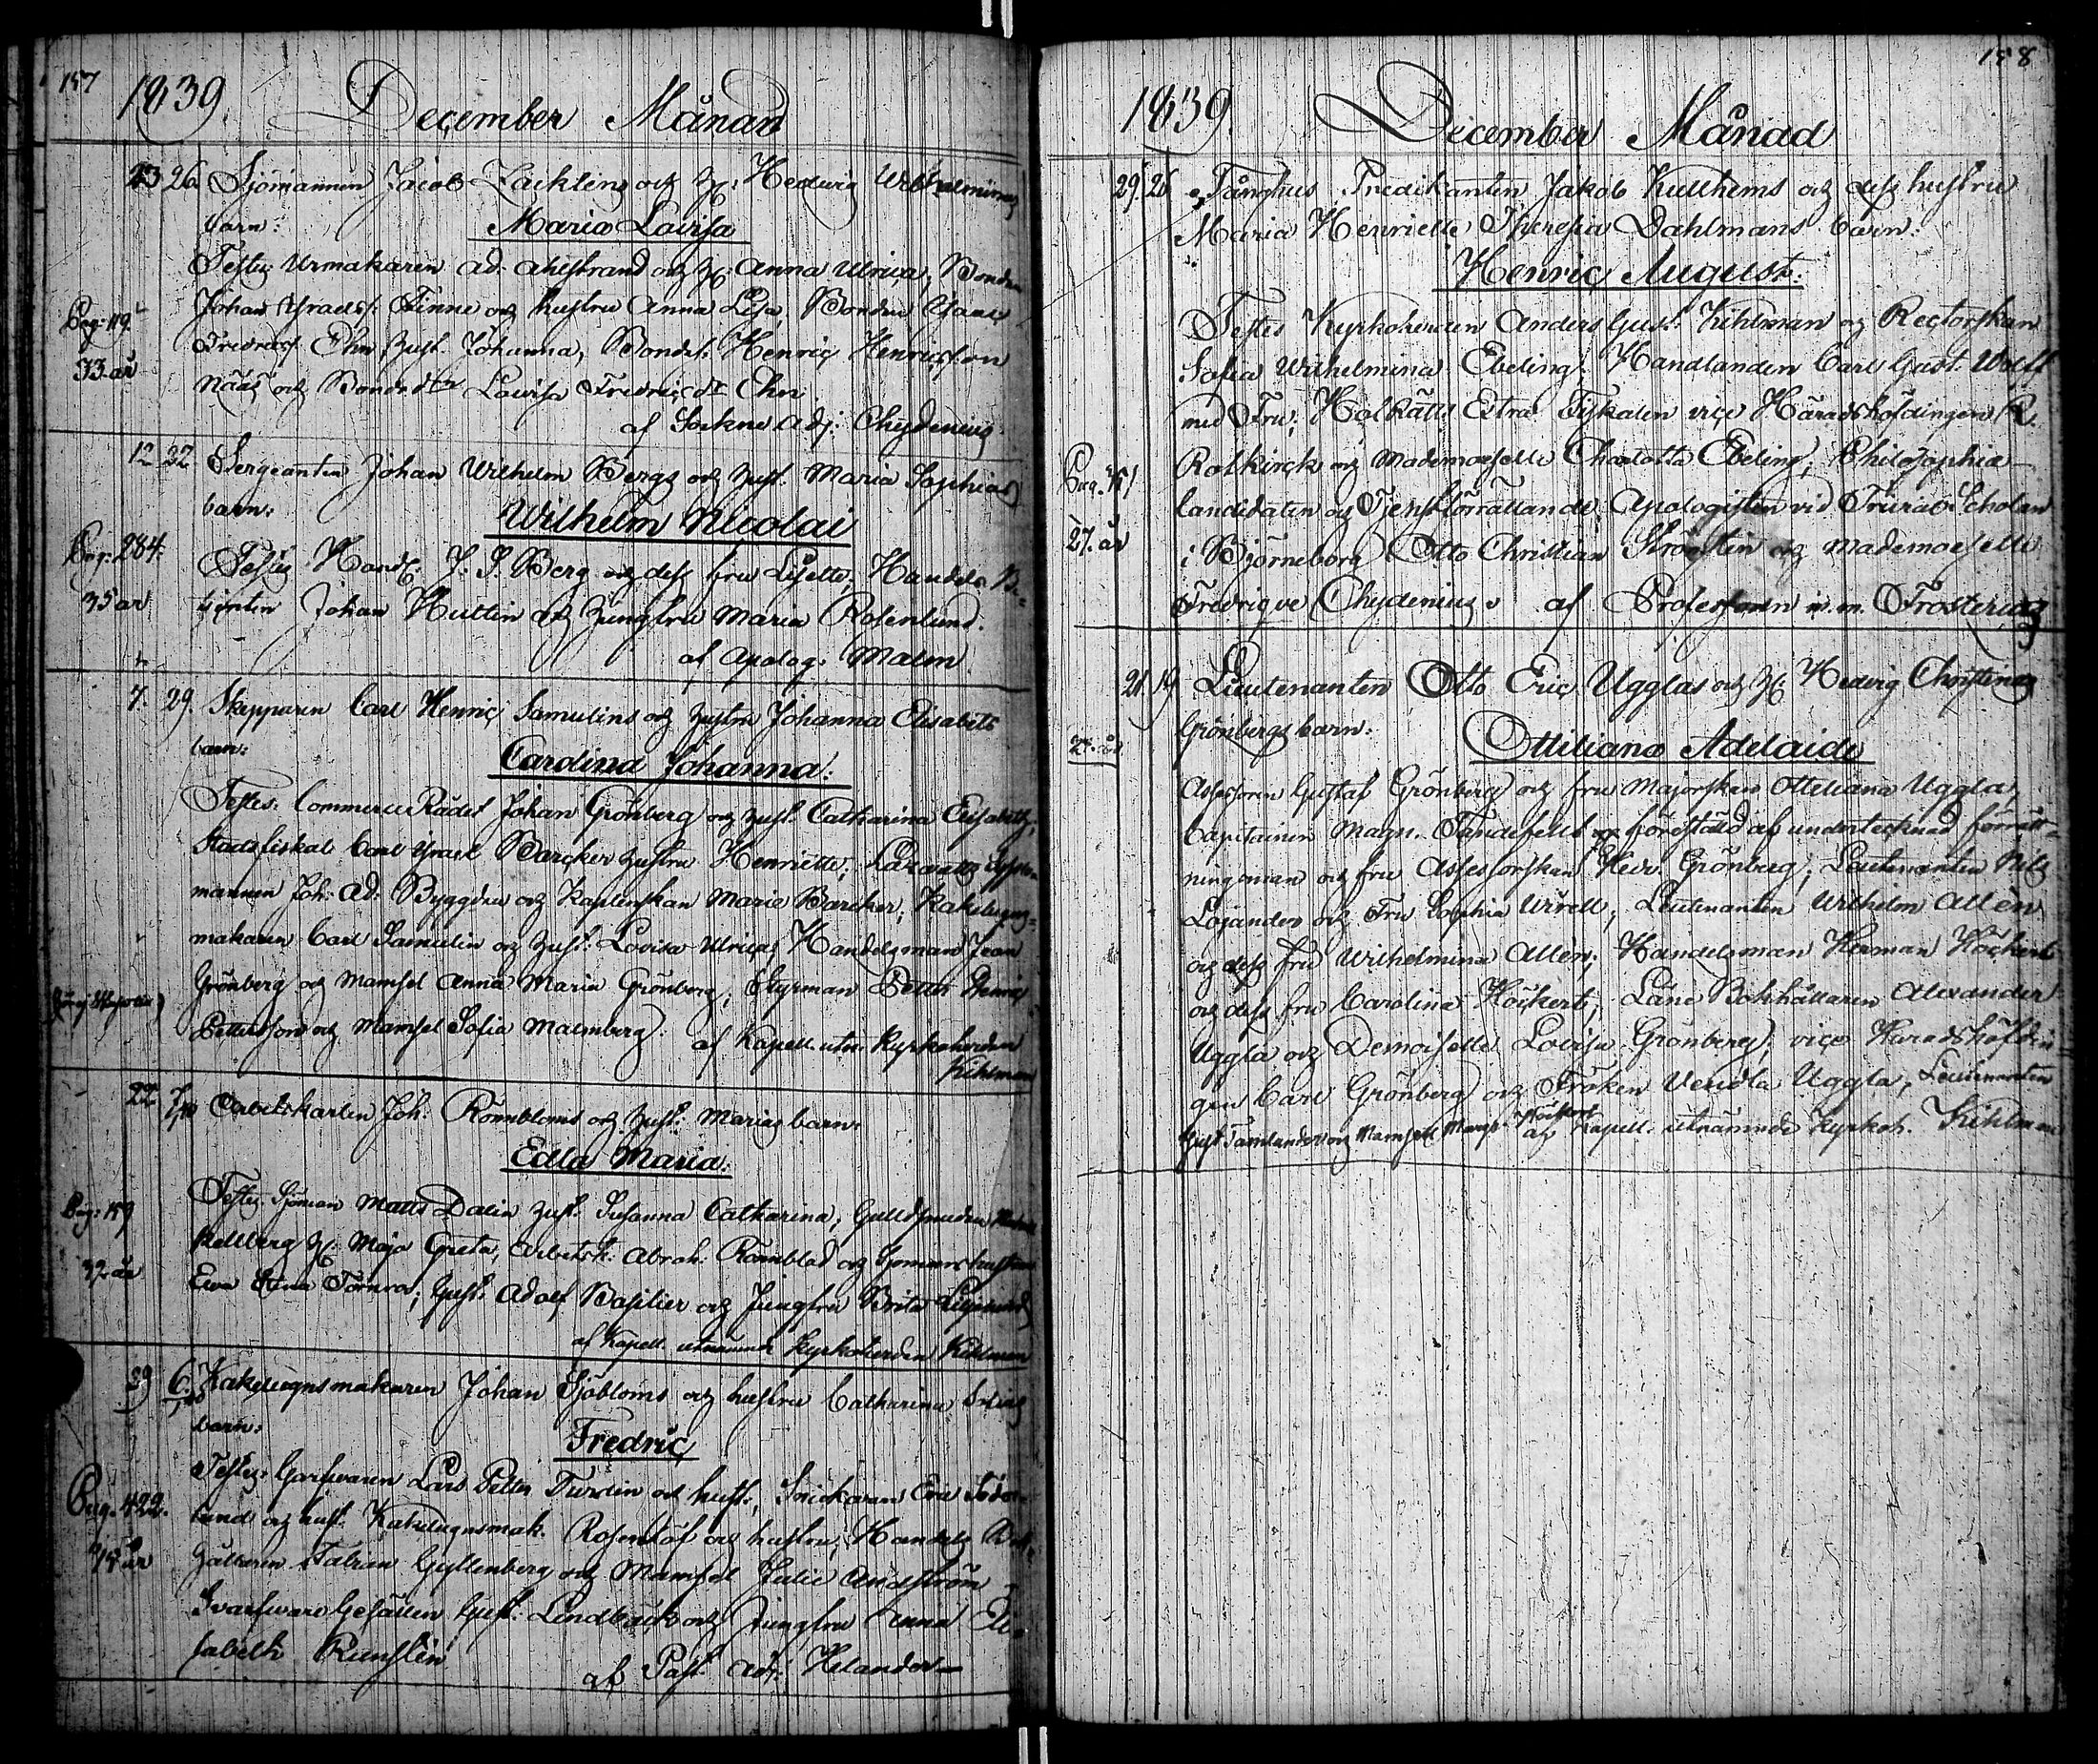 157
1839 December Månad
23 26 Sjömannen Jacob Lacklins och h: Hedwig Wilhelminas
barn:
Maria Lovisa
Testes Urmakaren Ad: Ahlstrand och h: Anna Ulrica, Bonden
Johan Finne och hustru Anna Lisa, Bonden
Pag: 119
Ehn hust. Johanna, Bondes. Henric Henricsson
33 år
Nääs och Bondedr Lovisa Fredricdr Ehn
af Sockne Adj: Chydenius
12 22 Sergeanten Johan Wilhelm Bergs och hust. Maria Sophias
barn:
Wilhelm Nicolai
Pag: 284.
Testes Handl: J. S. Berg och dess fru Lisette, Handels Be-
35 år
tjenten Johan Huttin och Jungfru Maria Rosenlund.
af Apolog: Malm
7. 29. Skepparen Carl Henric Samulins och hustru Johanna Elisabets
barn:
Carolina Johanna:
Testes: Commerce Rådet Johan Grönberg och hust. Catharina Elisabeth,
Stadsfiskal Carl Israel Barcker hustru Henriette; Lazaretts Syslo-
mannen Joh: Ad: Byggdén och Kaplenskan Marie Barcker; Kakelugns-
makaren Carl Samulin och hust: Lovisa Ulrica; Handelsman Jean
Grönberg och Mamsel Anna Maria Grönberg; Styrman Petter Henric
Pettersson och Mamsel Sofia Malmberg.
af Kapell. utn: Kyrkoherden
Kihlman
22 Arbetskarlen Joh: Rönnbloms och hust: Marias barn:
Edla Maria:
Pag: 159
Testes Sjöman Matts Dalin hust: Susanna Catharina; Guldsmeden
Kellberg h: Maja Greta, Arbetsk: Abrah: Rönnblad och
32 år
Ewa Stina Törnroos; Gust: Adolf Basilier och Jungfru Brita
af Kapell. utnämnde Kyrkoherden Kihlman
29 6 Kakelugnsmakaren Johan Sjöbloms och hustru Catharina
barn:
Fredric
Testes: Garfvaren Lars Petter Turdin och hust:, Snickaren Söder-
Pag. 422.
lund och hust. Kakelugnsmak. Rosenlöf och hustru; Handels Bok-
hållaren Fabian Gyllenberg och Mamsel Julie Andström
Svarfvare Gesällen Gust: Lindbäck och Jungfru Anna Eli-
sabeth Runstén
af Past. Adj: Helander

158
1839. December Månad
29. 26 Fånghus Predikanten Jakob Kullhems och dess hustru
Maria Henriette Theresia Dahlmans barn:
Henric August:
Testes Kyrkoherden Anders Gust: Kihlman och Rectorskan
Sofia Wilhelmina Ebeling; Handlanden Carl Gust. Wolff
med Fru; Hofrätts Extra Fiskalen vice Häradshöfdingen R.
Rotkirck och Mademoiselle Charlotta Ebeling; Philosophiæ
Candidaten och Tjenstförrättande Apologisten vid Trivial Scholan
27. år
i Björneborg Otto Christian Ströhstén och Mademoiselle
Fredrique Chydenius. af Professoren m. m. Frosterus
21 19 Lieutenanten Otto Eric Ugglas och h: Hedvig Christinas
Grönbergs barn:
Ottiliana Adelaide
Assessoren Gustaf Grönberg och fru Majorskan Ottiliana Uggla,
Capitainen Magn. Tandefelt föreställd af undertecknad förrätt-
ningsman och fru Assessorskan Hedv. Grönberg; Lieutenanten Nils
Lojander och Fru Sophia Wirell; Lieutenanten Wilhelm Allén
och dess fru Wilhelmina Allén; Handelsman Herman Höckert
och dess fru Carolina Höckert; Läne Bokhållaren Alexander
Uggla och Demoiselle Lovisa Grönberg; vice Häradshöfdin-
gen Carl Grönberg och Fröken Vendla Uggla, Lieutenanten
Gust Tamlander och Mamsell Höckert af Kapell. utnämnde Kyrkoh. Kihlman